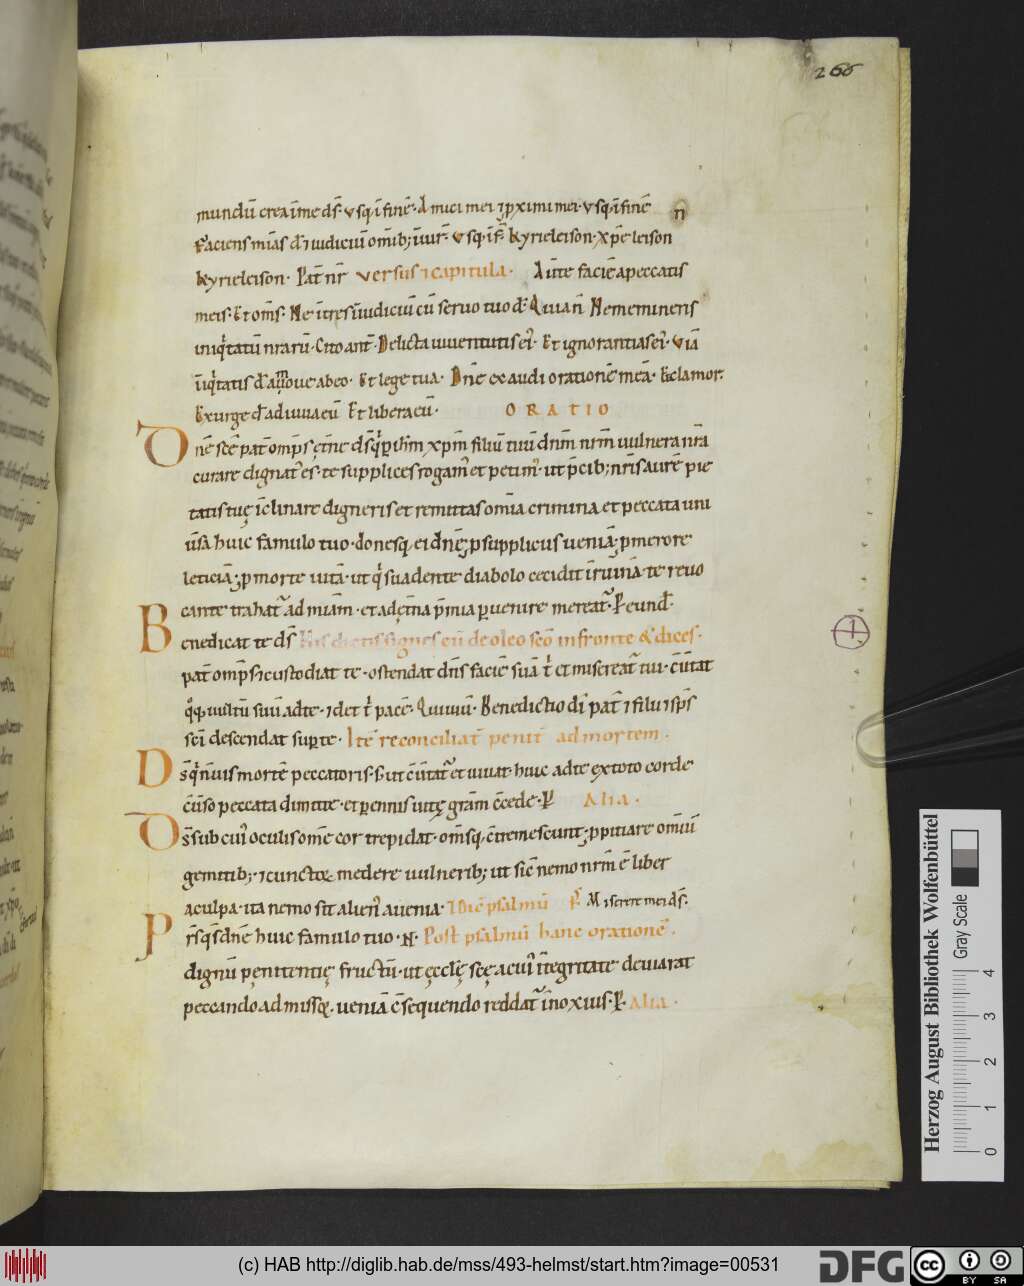 266
mundū crea īme dſ̄· vſq· ī finē· Amici mei ⁊ ꝓximi mei· vſq· ī finē
Faciens mīas dn̄ī iudiciū om̄ib; īiur̄· vſq· ī f̄· kyrieleison· xp̄eleison
kyrieleison· Pat̄ nr̄ verſuſ ⁊ capitula· Aūte faciē a peccatiſ
meiſ· Et om̄ſ· Ne ītreſ ī iudiciū cū ſeruo tuo d̄· Quian̄ Ne memineriſ
iniqͥtatū nrarū· Cito ant̄· Delicta iuuentutiſ ei᷒· Et ignorantiaſ ei᷒· Viā
īiqͥtatiſ d̄ amoue ab eo· Et lege tua· Dn̄e exaudi orationē meā· Et clamor·
Exurge d̄ adiuua eū Et libera eū· ORATIO
Dn̄e ſcē pat̄ omp̄ſ ęt̄ne dſ̄ qͥ ꝑ ihm̄ xp̄m filiū tuū dnm̄ nrm̄ uulnera nr̄a
curare dignat᷒ eſ· te ſuppliceſ rogam᷒ et petim᷒· ut p̄cib; nr̄iſ aurē pie
tatiſ tuę īclinare digneriſ et remittaſ om̄ia crimina et peccata uni
ūſa huic famulo tuo· doneſq· ei dn̄e ꝓ ſuppliciiſ ueniā; ꝓ merore
leticiā; ꝓ morte uitā· ut qͥ ſuadente diabolo cecidit ī ruinā· te reuo
cante trahat᷑ ad miām· et ad ęt̄na p̄mia ꝑuenire mereat᷑· Ꝑ eund̄·
Benedicat te dſ̄ Hiſ dictiſ ſigneſ eū de oleo ſcō in fronte & diceſ·
pat̄ omp̄ſ ⁊ cuſtodiat te· oſtendat dn̄ſ faciē ſuā t̄ et miſereat᷑ tui· c̄ūtat
qͦq· uultū ſuū ad te· ⁊ det t̄ pacē· Qui uiuit· Benedictio di̅ pat̄ ⁊ filii ⁊ ſp̄ſ
ſcī deſcendat ſuꝑ te· Itē reconciliat̄ penit̄ ad mortem·
Dſ̄ qͥ n̄ uiſ mortē peccatoriſ· ſ; ut c̄ūtat᷑ et uiuat· huic ad te ex toto corde
c̄ūſo peccata dimitte· et ꝑenniſ uitę grām c̄cede· Ꝑ Alia·
Dſ̄ ſub cui᷒ oculiſ om̄e cor trepidat· om̄ſq· c̄tremeſcunt; ꝓpitiare om̄iū
gemitib; ⁊ cunctoꝝ medere uulnerib; ut ſic̄ nemo nrm̄ ē liber
a culpa· ita nemo ſit alien᷒ a uenia· Dic̄ pſalmū Pſ̄ Miſerere mei dſ̄·
Pr̄ſ qſ̄ dn̄e huic famulo tuo ·N· Poſt pſalmū hanc orationē·
dignū pęnitentię fructū· ut ęcclę ſcę a cui᷒ īt̄egritate deuiarat
peccando admiſſoꝝ· ueniā c̄ſequendo reddat᷑ īnoxiuſ· Ꝑ· Alia·
Herzog August Bibliothek Wolfenbüttel
Gray Scale
0 1 2 3 4
(c) HAB http://diglib.hab.de/mss/493-helmst/start.htm?image=00531
DFG
cc BY SA